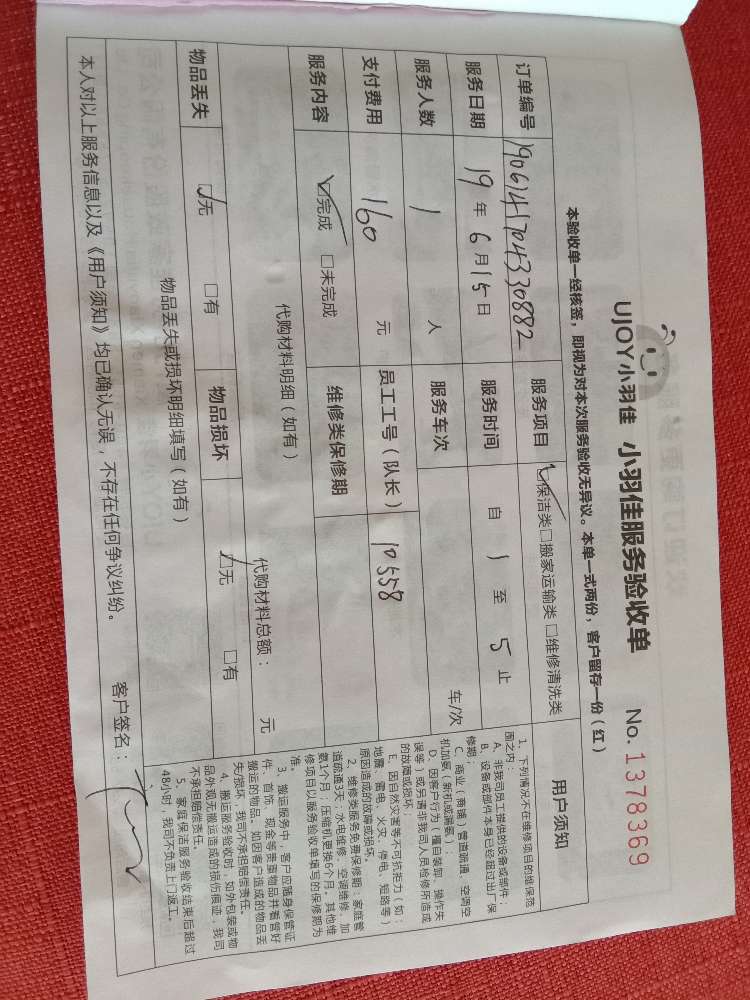 UJOY小羽佳 小羽佳服务验收单 No. 1378369
本验收单一经核签，即视为对本次服务验收无异议。本单一式两份，客户留存一份（红）
订单编号 190614170433088​2 服务项目 保洁类 □搬家运输类 □维修清洗类
服务日期 19年6月15日 服务时间 自 1 至 5 止
服务人数 1 人 服务车次 车/次
支付费用 160 元 员工工号（队长） 10558
服务内容 ☑完成 □未完成 维修类保修期
代购材料明细（如有） 代购材料总额： 元
物品丢失 ☑无 □有 物品损坏 ☑无 □有
物品丢失或损坏明细填写（如有）
本人对以上服务信息以及《用户须知》均已确认无误，不存在任何争议纠纷。 客户签名：
用户须知
1、下列情况不在维修项目的维保范
围之内：
A、非我司员工提供的设备或部件；
B、设备或部件本身已经超过出厂保
修期；
C、商业（商铺）管道疏通、空调空
机加氨（新机或漏氨）
D、因客户行为（擅自装卸、操作失
误等）或另请非我司人员检修所造成
的故障或损坏；
E、因自然灾害等不可抗拒力（如：
地震、雷电、火灾、停电、短路等）
原因造成的故障或损坏。
2、维修类服务免费保修期：家庭管
道疏通3天；水电维修、空调维修、加
氨1个月；压缩机更换6个月。其他维
修项目以服务验收单填写的保修期为
准。
3、搬运服务中，客户应随身保管证
件、首饰、现金等贵重物品并看管好
搬运的物品，如因客户造成的物品丢
失/损坏，我司不承担赔偿责任。
4、搬运服务验收时，如外包装或物
品外观无搬运造成的损伤痕迹，我司
不承担赔偿责任。
5、家庭保洁服务验收结束后超过
48小时，我司不负责上门返工。